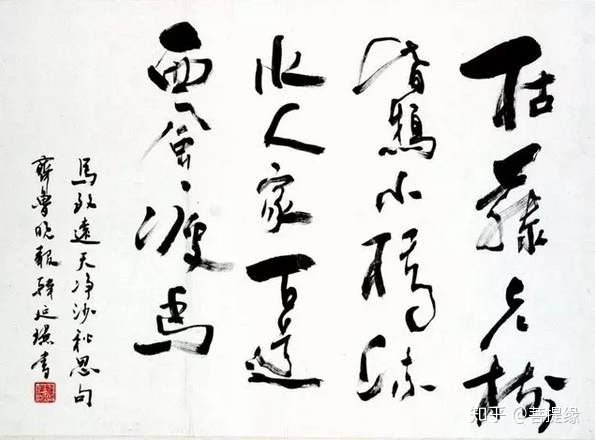 枯藤老樹
昏鴉小橋流
水人家古道
西風瘦馬
馬致遠天净沙秋思句
齊魯晚報韓廷書
知乎 @菩提缘